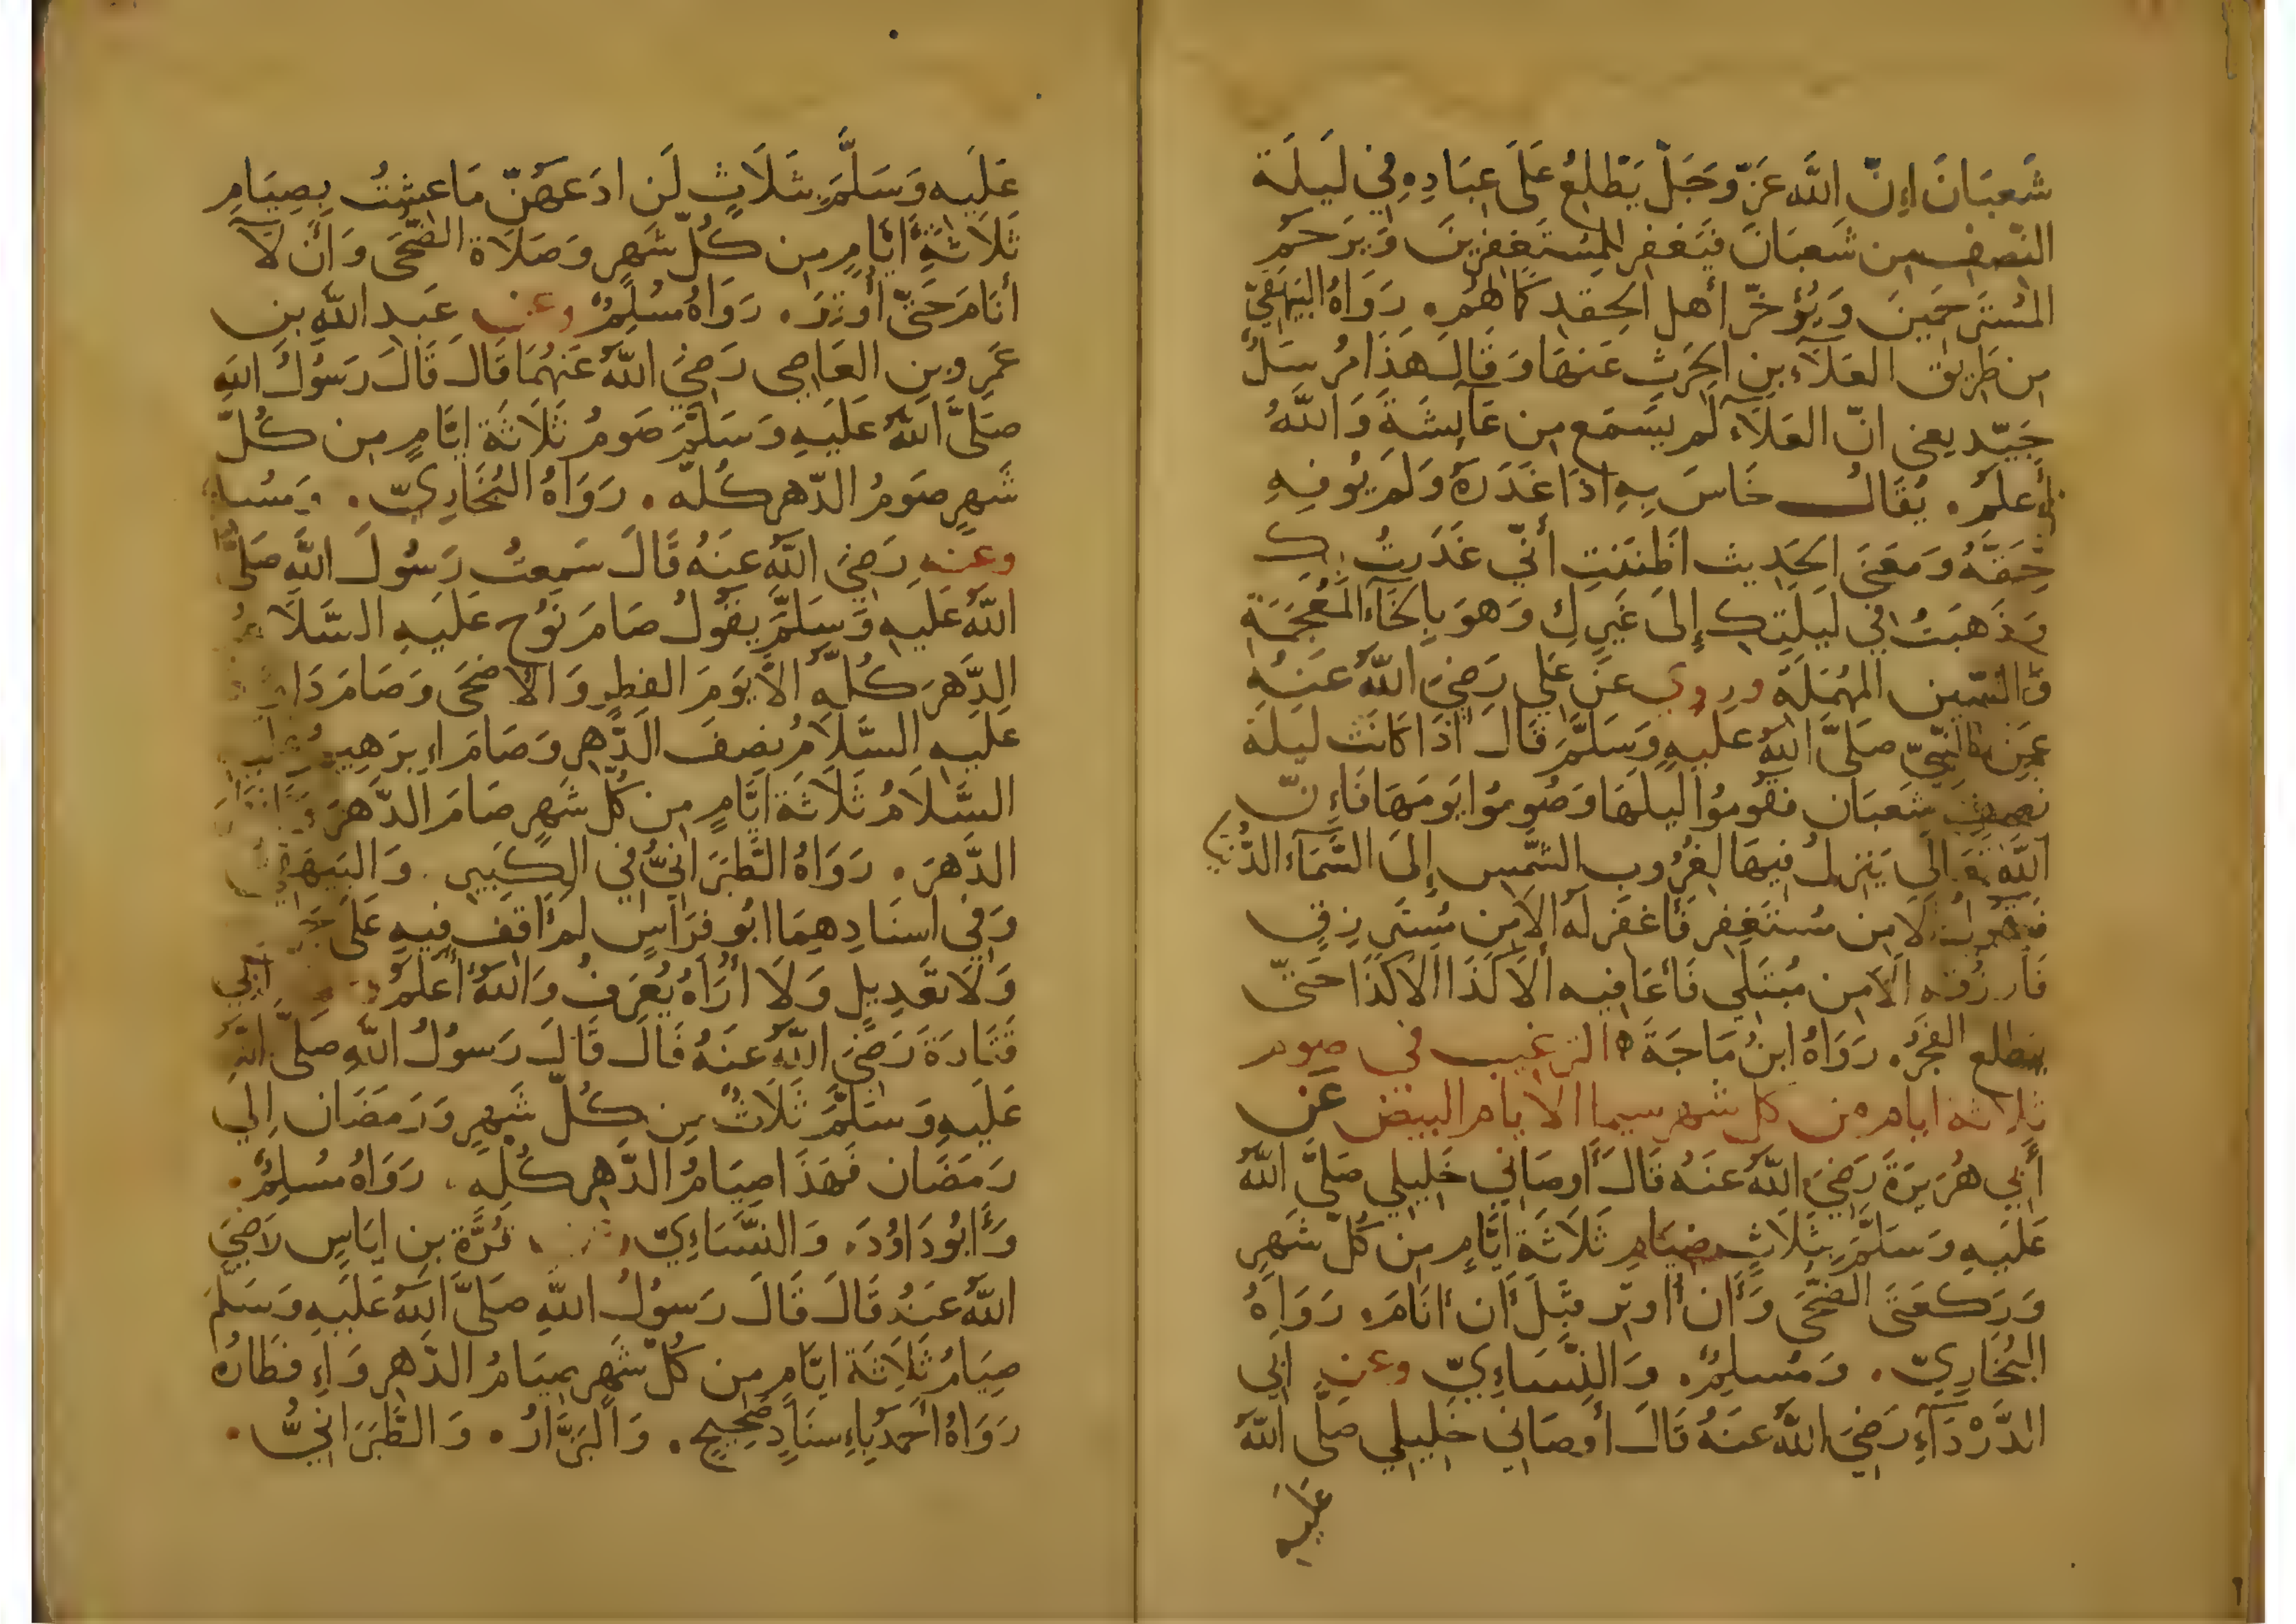 شَعبَانَ اِنّ اللَّه عَزّ وَجَلّ يَطّلِعُ عَلَى عِبَادِهِ فِي لَيلَة
النّصف مِن شَعبَانَ فَيَغفِر لِلمُستَغفِرِينَ وَيَرحَم
المُستَرحَمِينَ وَيُؤخّر أهل الحِقد كَمَا هُم. رَوَاهُ البَيهَقيّ
مِن طَرِيق العَلآء بن الحَرث عَنهَا وَقَالَ هَذَا مُرسَلٌ
جَيّد يعني انّ العَلآء لَم يَسمَع مِن عَآئِشَةَ وَاللَّهُ
أعلمُ. يُقَالُ خَاسَ بِهِ اذَا غَدَرَهُ وَلَم يُوفِهِ
حَقّهُ وَمَعنَى الحَدِيث اظَنَنتِ أنّي غَدَرتُ بِك
وَذَهَبتُ فِي لَيلَتِكِ إِلىَ غَيرِكِ وَهوَ بِالخَآءِ المُعجَمَةِ
وَالسّين المُهمَلَةِ وروي عَن عَلِي رَضِيَ اللَّهُ عَنهُ
عَن النّبِيّ صَلَّى اللَّهُ عَلَيهِ وَسَلَّمَ قَالَ اذَا كَانَت لَيلَة
نصف شَعبَان فقُومُوا لَيلَهَا وَصُومُوا يَومَهَا فَاِنّ
اللَّهَ تَعَالي يَنزِلُ فِيهَا لِغُرُوبِ الشّمسِ إِلىَ السَّمَآءِ الدُّنيَا
فَيَقُولُ الاَ مِن مُستَغفِر فَأغفرَ لَهُ الاَ مِن مُستَرزِقٍ
فَأرزُقَه الاَ مِن مُبتَلِي فَأعَافِيه ألاَ كَذَا الاَ كَذَا حَتّى
يَطلع الفَجرُ. رَوَاهُ ابنُ مَاجَةَ ه الترغيب في صوم
ثلاثة ايام من كل شهر سيما الايام البيض عَن
أَبِي هُرَيرَةَ رَضِيَ اللَّهُ عَنهُ قَالَ أوصَانِي خَلِيلِي صَلَّى اللَّهُ
عَلَيهِ وَسَلَّمَ بِثَلاَثٍ صِيَامِ ثَلاَثَة ايَّامٍ مِن كُلّ شَهرٍ
وَرَكعَتَي الضّحَى وَأن أوتِر قَبلَ أن أنَامَ. رَوَاهُ
البُخَارِيّ. وَمُسلِمٌ. وَالنِّسَاءِيّ وعن ابِي
الدَّرْدَآءِ رَضِيَ اللَّهُ عَنهُ قَالَ أوصَانِي خَلِيلِي صَلَّى اللَّهُ
عَلَيهِ
عَلَيهِ وَسَلَّمَ بِثَلاَثٍ لَن ادَعَهُنّ مَا عِشتُ بِصِيَامِ
ثَلاَثَةِ ايَّامٍ مِن كُلّ شَهرٍ وَصَلاَة الضّحَى وَأن لاَ
أنَامَ حَتّى أوتِرَ. رَوَاهُ مُسلِمٌ وعن عَبدِ اللَّهِ بن
عَمرِو بنِ العَاصِي رَضِيَ اللَّهُ عَنهُمَا قَالَ قَالَ رَسُولُ اللَّهِ
صَلَّى اللَّهُ عَلَيهِ وَسَلَّمَ صَومُ ثَلاَثَة ايَّامٍ مِن كُلّ
شَهرٍ صَومُ الدّهرِ كُلّه. رَوَاهُ البُخَارِيّ. وَمُسلم
وعنه رَضِيَ اللَّهُ عَنهُ قَالَ سَمِعتُ رَسُولَ اللَّهِ صَلَّى
اللَّهُ عَلَيهِ وَسَلَّمَ يَقُولُ صَامَ نُوح عَلَيهِ السَّلاَم
الدَّهرَ كُلَّهُ الاَّ يَومَ الفِطرِ وَالاَضحَى وَصَامَ دَاوُد
عَلَيهِ السَّلاَمُ نِصفَ الدَّهرِ وَصَامَ اِبرَهِيمُ عَلَيهِ
السَّلاَمُ ثَلاَثَةَ ايَّامٍ مِن كُلّ شَهرٍ صَامَ الدَّهرَ وَافطَرَ
الدَّهرَ. رَوَاهُ الطَّبَرَانِيُّ فِي الكَبِيرِ. وَالبَيهَقِيّ
وَفِي اسنَادِهِمَا ابُو فرَاسٍ لَم أقِف فِيهِ عَلَى جَرح
وَلاَ تَعدِيلٍ وَلاَ أرَاهُ يُعرَفُ وَاللَّهُ أعلَمُ وعن أبِي
قَتَادَةَ رَضِيَ اللَّهُ عَنهُ قَالَ قَالَ رَسُولُ اللَّهِ صَلَّى اللَّهُ
عَلَيهِ وَسَلَّمَ ثَلاَثٌ مِن كُلّ شَهرٍ وَرَمَضَان اِلي
رَمَضَان فَهَذَا صِيَامُ الدَّهرِ كُلِّهِ. رَوَاهُ مُسلِمٌ.
وَأبُو دَاوُدَ. وَالنّسَاءِيّ وعن قُرَّة بن ايَاسٍ رَضِيَ
اللَّهُ عَنهُ قَالَ قَالَ رَسُولُ اللَّهِ صَلَّى اللَّهُ عَلَيهِ وَسَلَّمَ
صِيَامُ ثَلاَثَةِ ايَّامٍ مِن كُلّ شَهرٍ صِيَامُ الدَّهرِ وَاِفطَارُهُ
رَوَاهُ أحمَدُ بِاءِسنَادٍ صَحِيحٍ. وَالبَزَّارُ. وَالطَّبَرَانِيُّ.